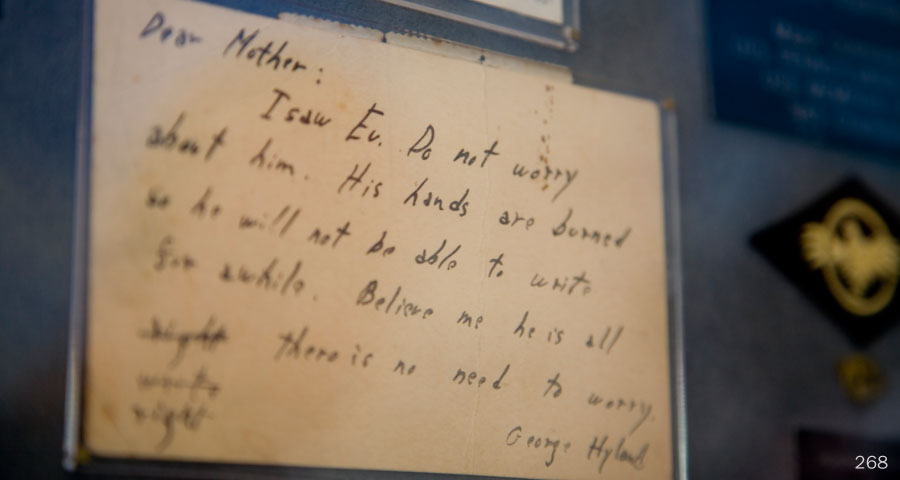 Dear Mother:
I saw Ev. Do not worry
about him. His hands are burned
so he will not be able to write
for awhile. Believe me he is all
right there is no need to worry.
right
George Hyland
268